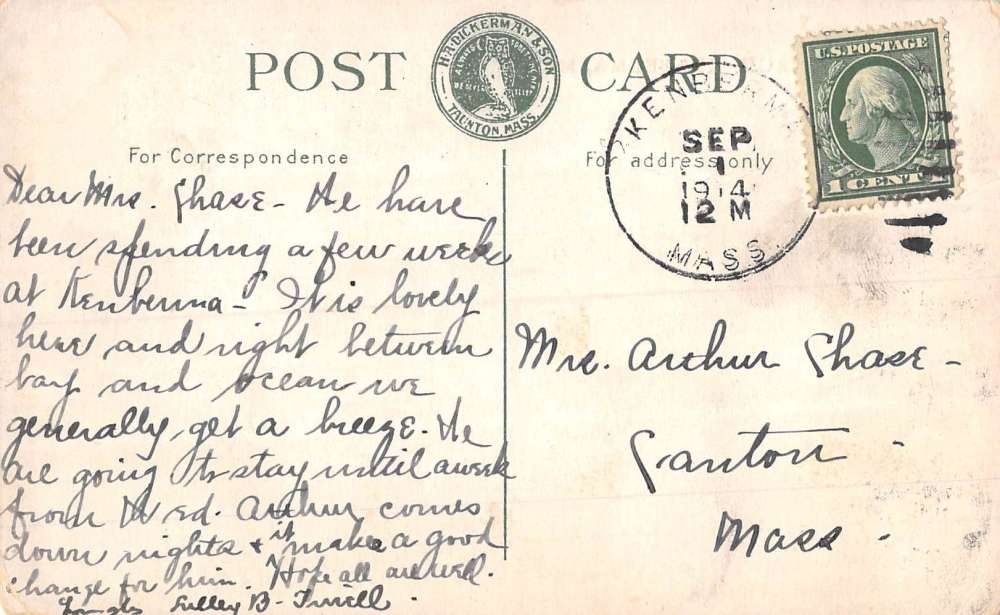 POST CARD
H.A. DICKERMAN & SON
TAUNTON, MASS.
For Correspondence
For address only
KENBERMA
SEP
1
1914
12 M
MASS.
U.S. POSTAGE
1 CENT
Dear Mrs. Chase - We have
been spending a few weeks
at Kenberma - It is lovely
here and right between
bay and ocean we
generally get a breeze. We
are going to stay until a week
from Wed. Arthur comes
down nights & it makes a good
change for him. Hope all are well.
B. Tirrell
Mrs. Arthur Chase -
Canton -
Mass -